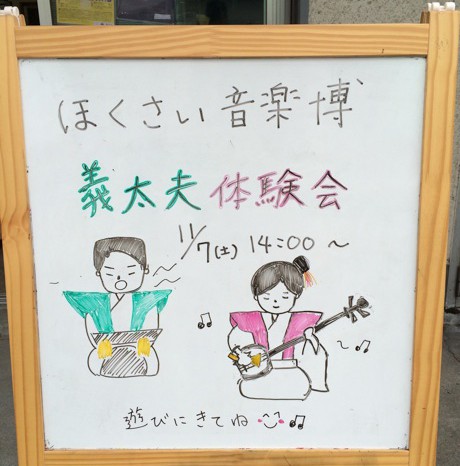 ほくさい音楽博
義太夫体験会
11/7(土) 14:00〜
遊びにきてね